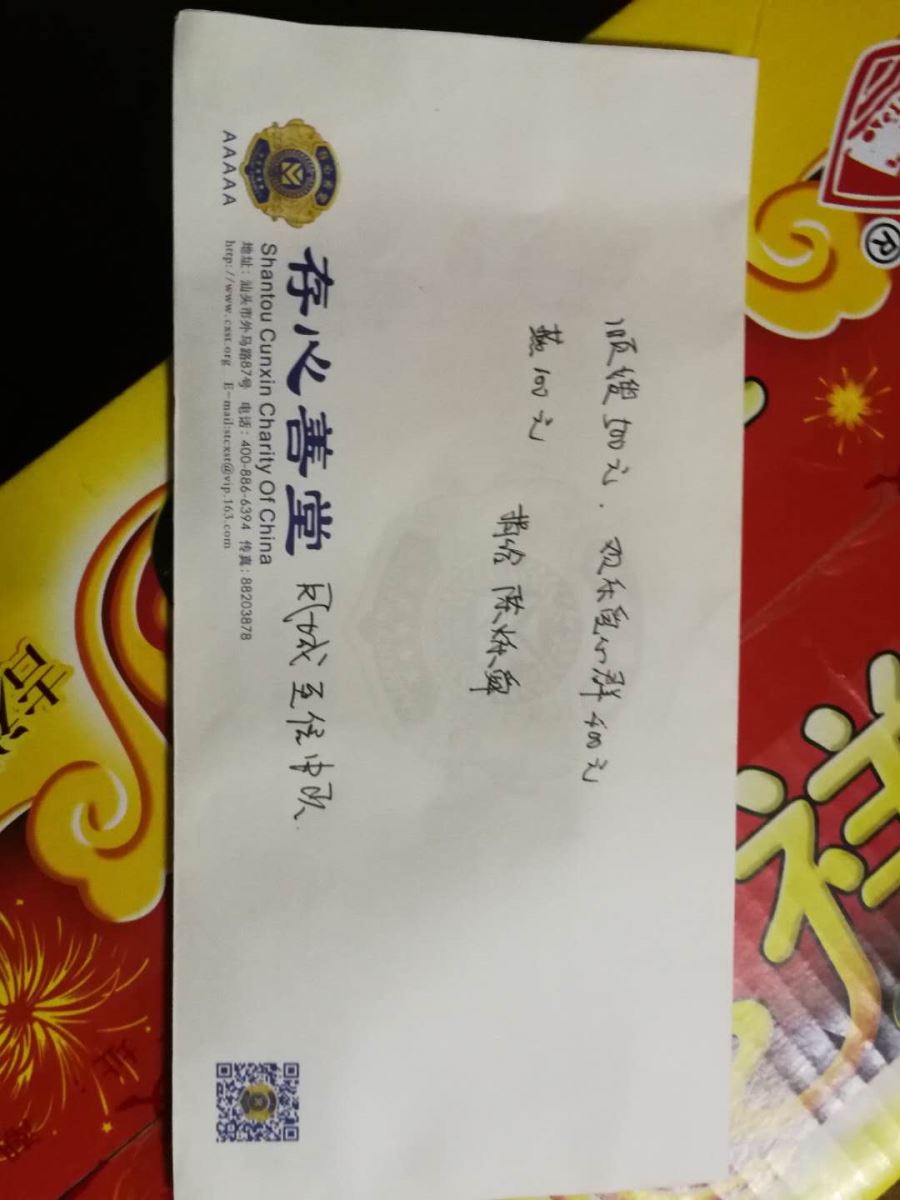 顺嫂500元．欢乐爱心群400元
燕100元
捐给 陈炼
存心善堂 凤城互信中队
Shantou Cunxin Charity Of China
地址：汕头市外马路87号 电话：400-886-6394 传真：88203878
http://www.cxst.org E-mail:stcxst@vip.163.com
AAAAA
®
吉祥